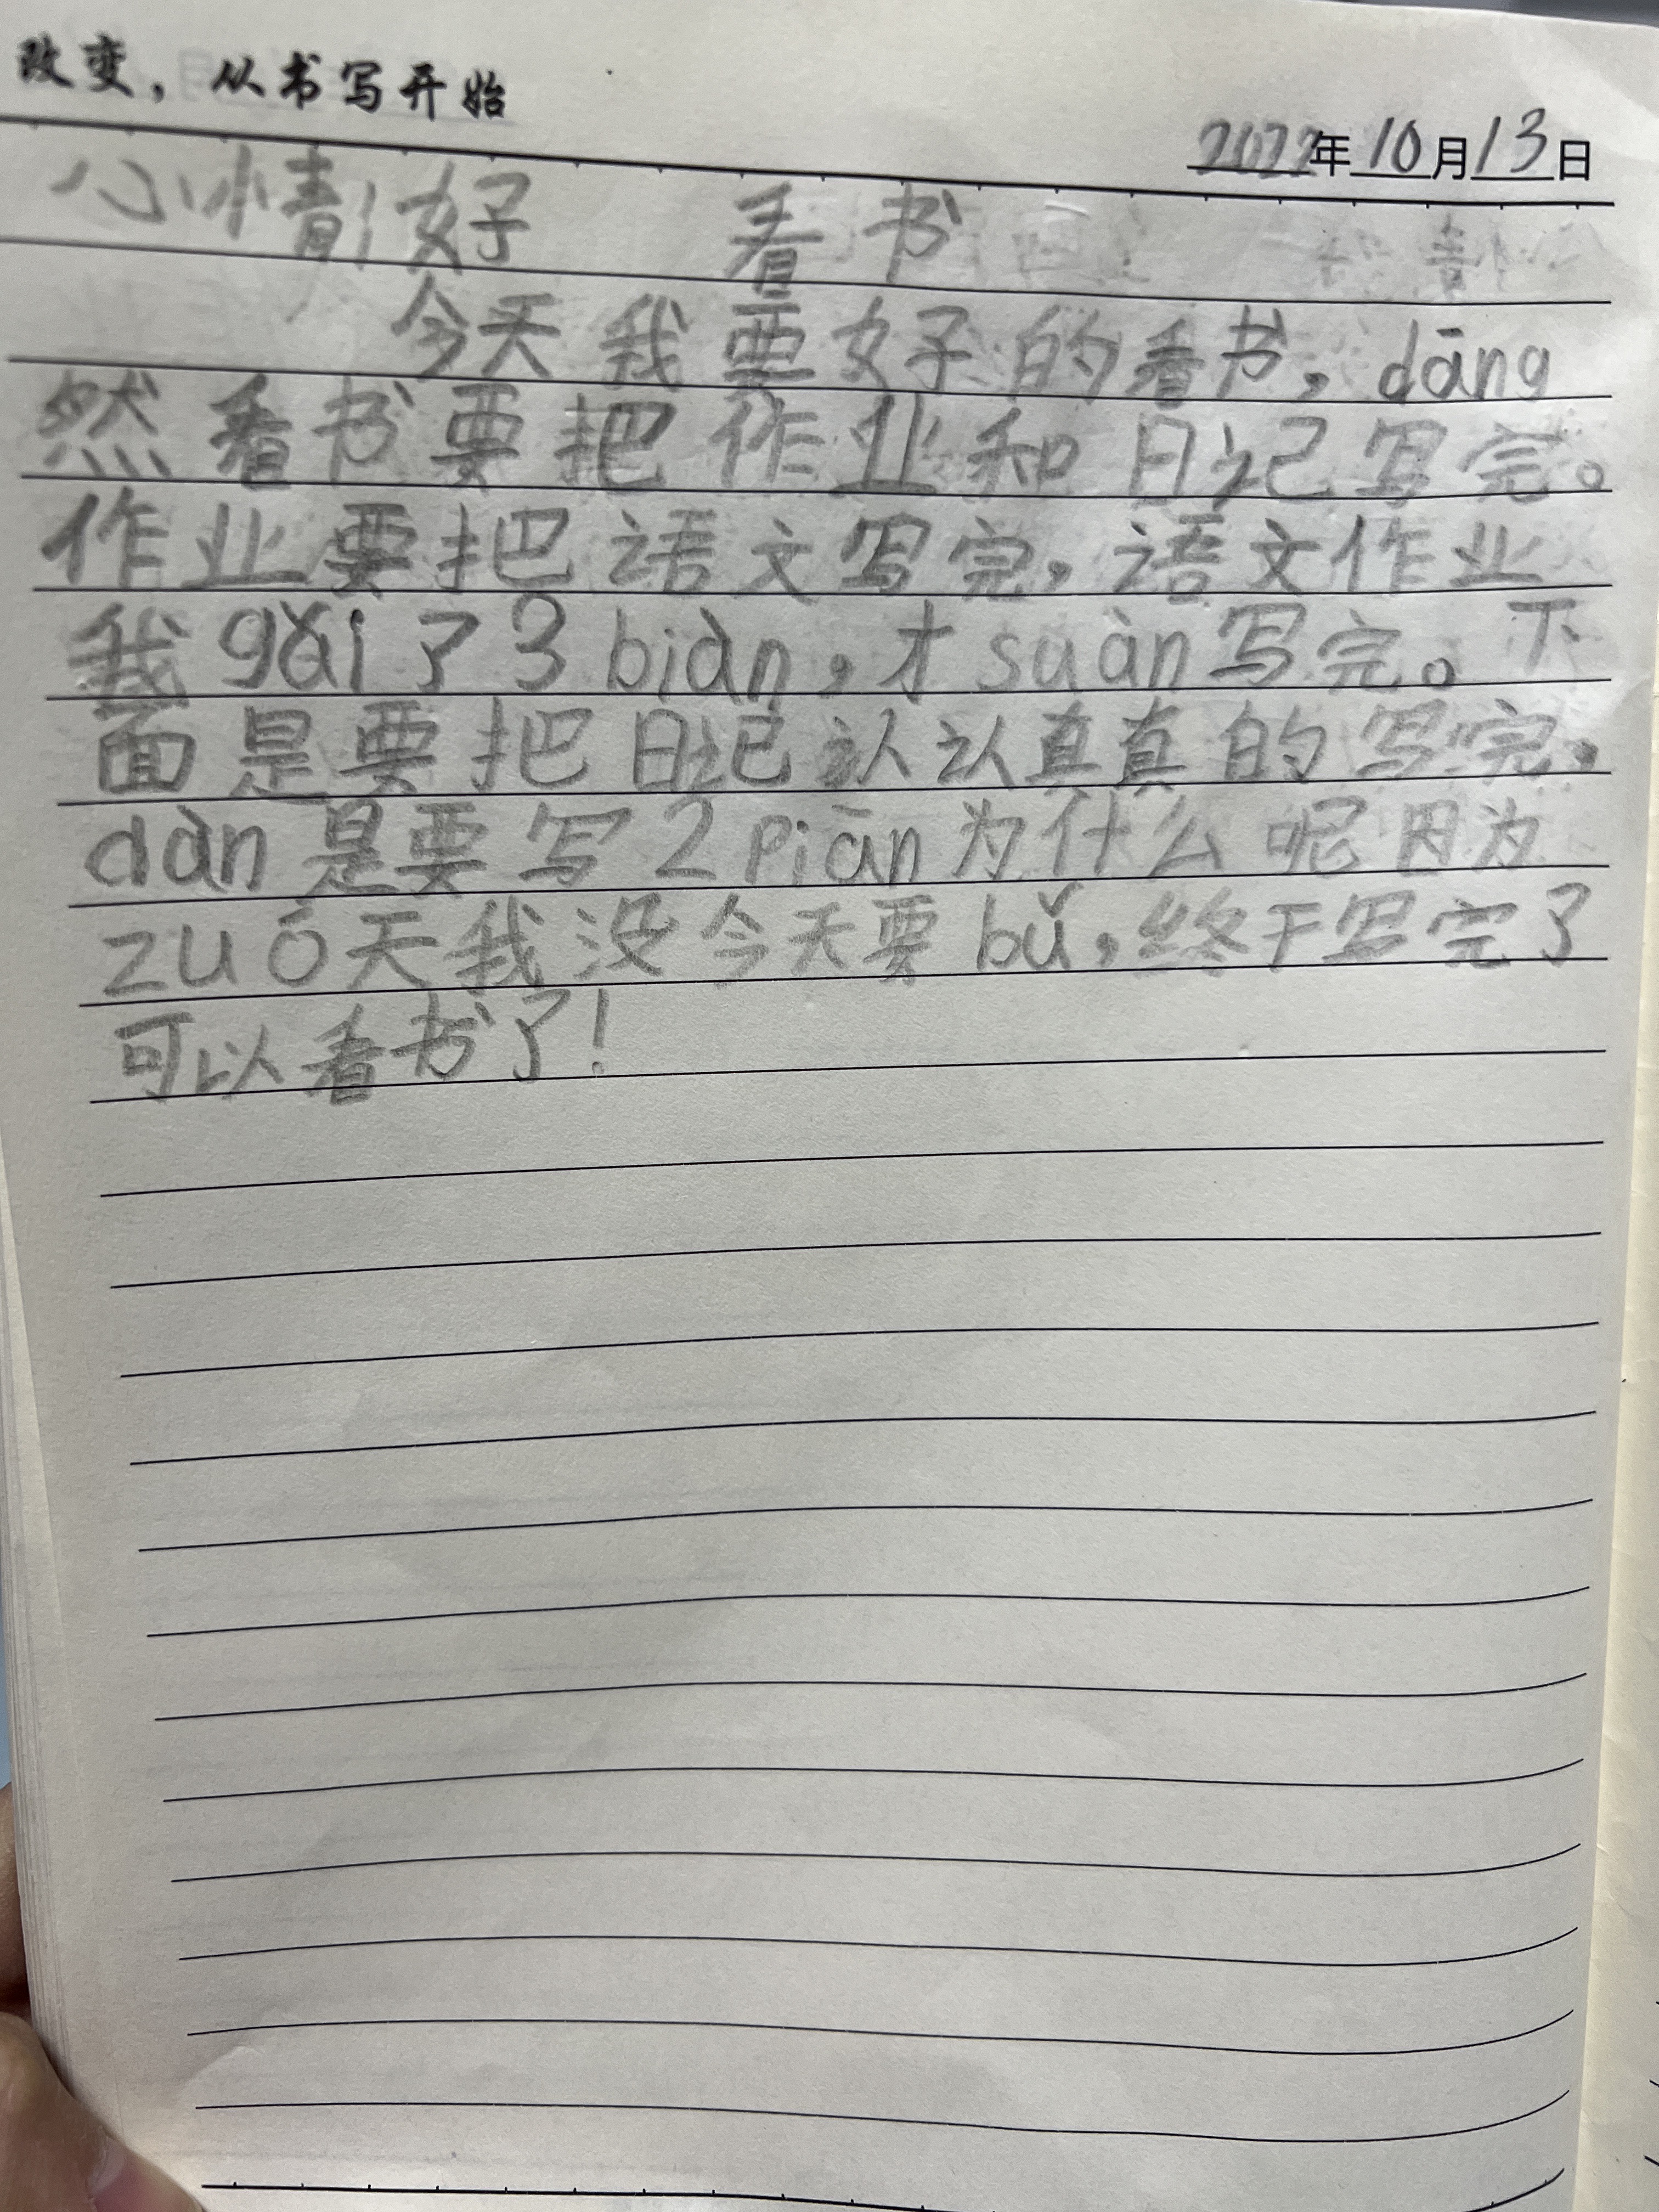 改变，从书写开始
2022年10月13日
心情:好 看书
今天我要好的看书，dāng
然看书要把作业和日记写完。
作业要把语文写完，语文作业
我gǎi了3biàn，才suàn写完。下
面是要把日记认认真真的写完，
dàn是要写2piān为什么呢因为
zuó天我没今天要bǔ，终于写完了
可以看书了！